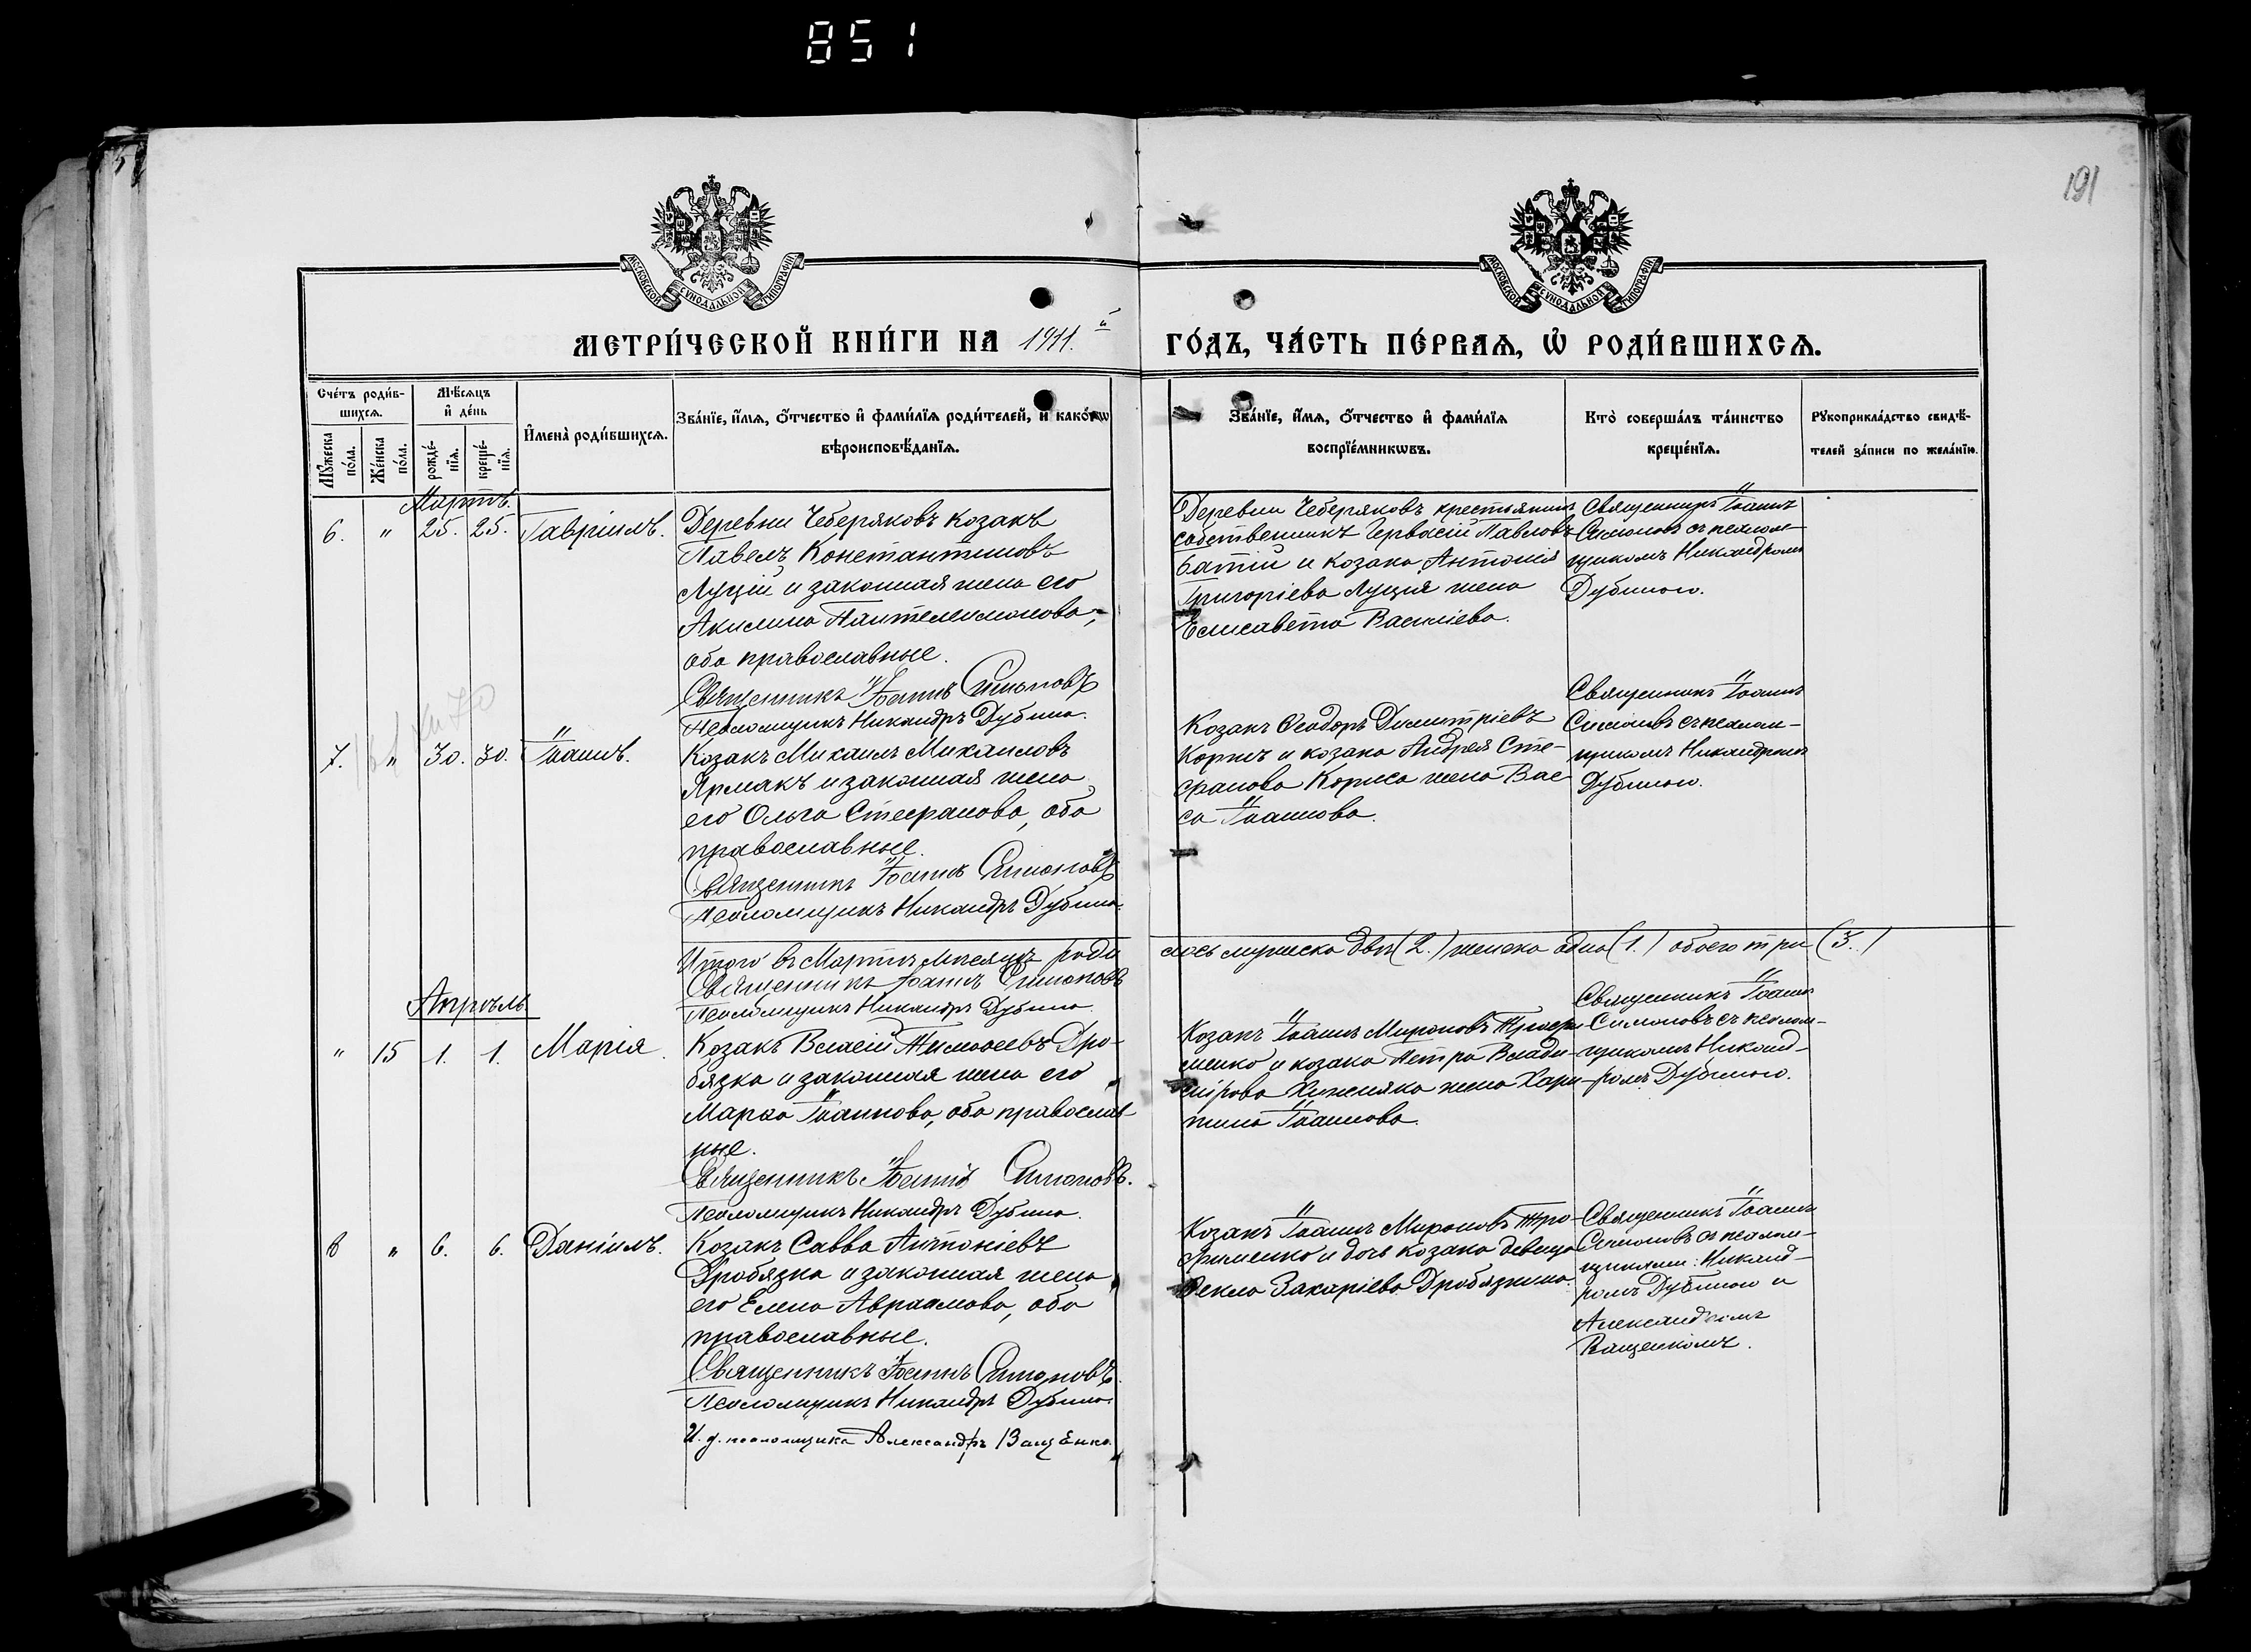 851
191
МОСКОВСКОЙ СѴНОДАЛЬНОЙ ТИПОГРАФІИ
МОСКОВСКОЙ СѴНОДАЛЬНОЙ ТИПОГРАФІИ
МЕТРИ́ЧЕСКОЙ КНИ́ГИ НА 1911.й ГО́ДЪ, ЧА́СТЬ ПЕ́РВАѦ, Ѡ҆ РОДИ́ВШИХСѦ.
Сче́тъ роди́в-
шихсѧ.
Мꙋ́жеска
по́ла.
Же́нска
по́ла.
Мѣ́сѧцъ
и҆ де́нь
рожде́-
нїѧ.
креще́-
нїѧ.
И҆мена̀ роди́вшихсѧ.
Зва́нїе, и҆́мѧ, ѻ҆́тчество и҆ фами́лїѧ роди́телей, и҆ како́гѡ
вѣроисповѣ́данїѧ.
Зва́нїе, и҆́мѧ, ѻ҆́тчество и҆ фами́лїѧ
воспрїе́мникѡвъ.
Кто̀ соверша́лъ та́инство
креще́нїѧ.
Рꙋкоприкла́дство свидѣ́-
телей за́писи по жела́нїю.
Мартъ.
6. " 25. 25. Гавріилъ.
Деревни Чеберяковъ козакъ
Павелъ Константиновъ
Луцій и законная жена его
Акилина Пантелеимонова,
оба православные.
Священникъ Іоаннъ Симоновъ
Псаломщикъ Никандръ Дубина.
Деревни Чеберяковъ крестьянинъ
собственникъ Гервасій Павловъ
Батій и козака Антонія
Григоріева Луція жена
Елисавета Василіева.
Священникъ Іоаннъ
Симоновъ съ псалом-
щикомъ Никандромъ
Дубиною.
7. " 30. 30. Іоаннъ.
Козакъ Михаилъ Михаиловъ
Ярмакъ и законная жена
его Ольга Стефанова, оба
православные.
Священникъ Іоаннъ Симоновъ
Псаломщикъ Никандръ Дубина.
Козакъ Ѳеодоръ Димитріевъ
Корисъ и козака Андрея Сте-
фанова Кориса жена Вас-
са Іоаннова.
Священникъ Іоаннъ
Симоновъ съ псалом-
щикомъ Никандромъ
Дубиною.
Итого въ Мартѣ мѣсяцѣ роди
лось мужеска два (2.) женска одна (1.) обоего три (3.)
Священникъ Іоаннъ Симоновъ
Псаломщикъ Никандръ Дубина.
Апрѣль
" 15 1. 1. Марія.
Козакъ Власій Тимоѳеевъ Дро-
бязка и законная жена его
Марѳа Іоаннова, оба православ
ные.
Священникъ Іоаннъ Симоновъ.
Псаломщикъ Никандръ Дубина.
Козакъ Іоаннъ Мироновъ Трофи
менко и козака Петра Влади-
мірова жена Хари-
тина Іоаннова.
Священникъ Іоаннъ
Симоновъ съ псалом-
щикомъ Никанд-
ромъ Дубиною.
8 " 6. 6. Даніилъ.
Козакъ Савва Антоніевъ
Дробязка и законная жена
его Елена Авраамова, оба
православные.
Священникъ Іоаннъ Симоновъ.
Псаломщикъ Никандръ Дубина.
И. д. псаломщика Александръ Ващенко.
Козакъ Іоаннъ Мироновъ Тро-
фименко и дочь козака девица
Ѳекла Захаріева Дробязкина.
Священникъ Іоаннъ
Симоновъ съ псалом-
щиками: Никанд-
ромъ Дубиною и
Александромъ
Ващенкомъ.